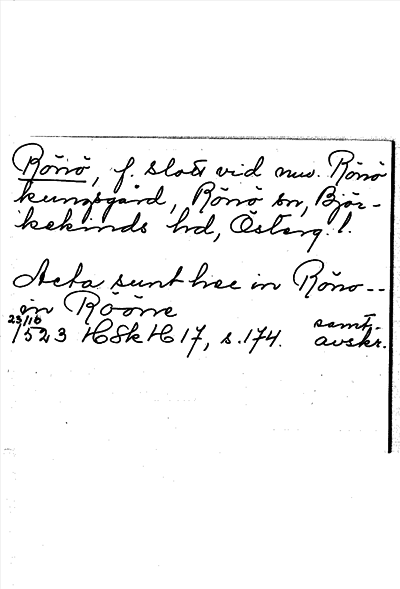 Rönö, f. slott vid nuv. Rönö
kungsgård, Rönö sn, Björ-
kekinds hd, Österg. l.
Acta sunt hec in Röno--
in Rööne
23/10
1523 HSkH 17, s. 174. samt.
avskr.